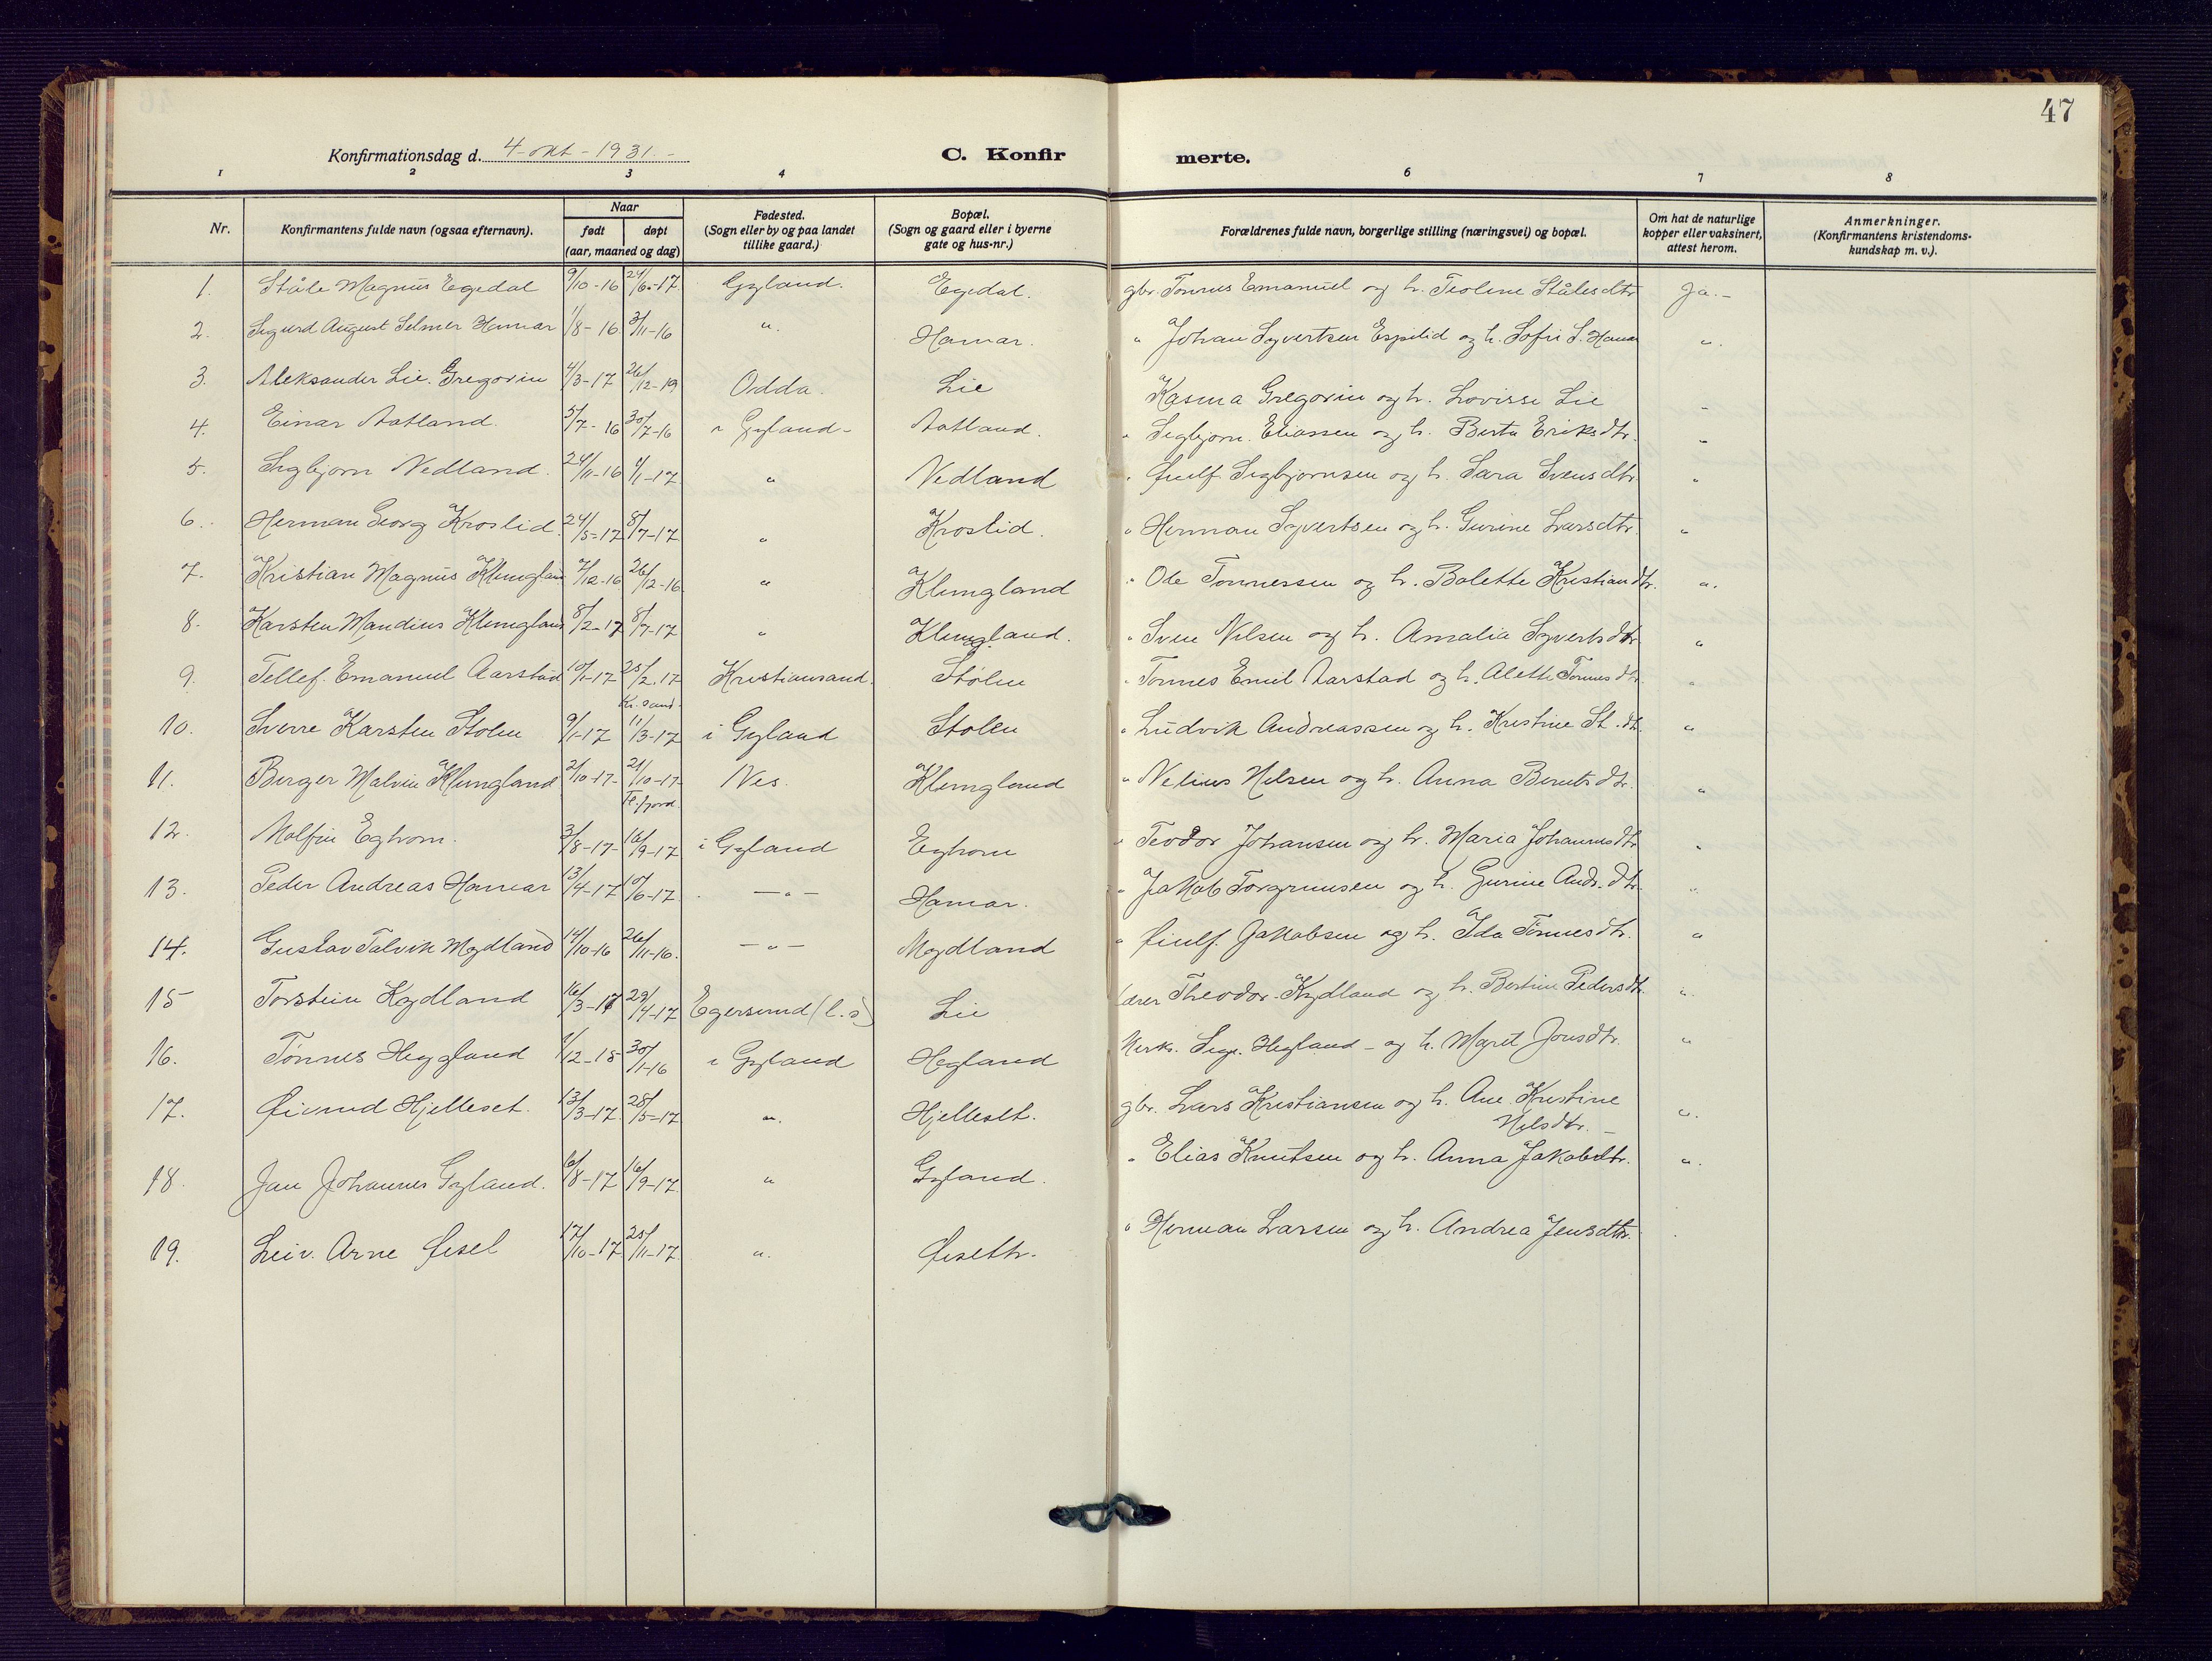 47
Konfirmationsdag d. 4-okt-1931.-
C. Konfirmerte.
1 2 3 4 6 7 8
Nr. Konfirmantens fulde navn (ogsaa efternavn). Naar født døpt (aar, maaned og dag) Fødested. (Sogn eller by og paa landet tillike gaard.) Bopæl. (Sogn og gaard eller i byerne gate og hus-nr.) Forældrenes fulde navn, borgerlige stilling (næringsvei) og bopæl. Om hat de naturlige kopper eller vaksinert, attest herom. Anmerkninger. (Konfirmantens kristendomskundskap m. v.).
1. Ståle Magnus Egedal 9/10-16 24/6-17 Gyland. Egedal. gbr. Tønnes Emanuel og h. Teoline Stålesdtr Ja.-
2. Sigurd August Selmer Hamar 1/8-16 3/11-16 " Hamar. " Johan Syvertsen Espelid og h. Sofie S. Hamar "
3. Aleksander Lie. Gregorin 4/3-17 26/12-19 Odda. Lie Kasma Gregorin og h. Lovisse Lie "
4. Einar Aatland. 5/7-16 30/7-16 i Gyland- Aatland. " Sigbjørn Eliassen og h. Berta Eriksdtr. "
5. Sigbjørn Nedland. 24/11-16 1/1-17 " Nedland " Øiulf Sigbjørnsen og h. Sara Svensdtr. "
6. Herman Georg Kroslid. 24/5-17 8/7-17 " Kroslid. " Herman Syvertsen og h. Gurine Larsdtr. "
7. Kristian Magnus Klungland 7/12-16 26/12-16 " Klungland " Ole Tønnessen og h. Bolette Kristiandtr. "
8. Karsten Mandius Klungland 8/2-17 8/7-17 " Klungland. " Sven Nilsen og h. Amalia Syvertsdtr. "
9. Tellef. Emanuel Aarstad 10/1-17 25/2.17 Kr.sand. Kristiansand. Stølen " Tønnes Emil Aarstad og h. Alette Tønnesdtr. "
10. Sverre Karsten Stølen 9/1-17 11/3-17 i Gyland Stølen " Ludvik Andreassen og h. Kristine St.dtr. "
11. Berger Malvin Klungland 2/10-17- 21/10-17- Fl.fjord. Nes. Klungland " Nelius Nilsen og h. Anna Berntsdtr. "
12. Molfin Eghom. 3/8-17- 16/9-17 i Gyland Eghom " Teodor Johansen og h. Maria Johannesdtr. "
13. Peder Andreas Hamar 13/4-17 10/6-17 - " - Hamar. " Jakob Torgrimsen og h. Gurine Andr.dtr. "
14. Gustav Talvik Mydland 14/10-16 26/11-16. - " - Mydland " Øiulf. Jakobsen og h. Ida Tønnesdtr. "
15 Torstein Kydland 16/3-17 29/4-17 Egersund (l.s) Lie lærer Theodor Kydland og h. Bertine Pedersdtr. "
16. Tønnes Heggland 1/12-15 30/1-16 i Gyland Hegland Kirks. Hegland - og h. Marit Jonsdtr. "
17. Øivind Hjelleset. 13/3-17. 28/5-17 " Hjelleset. gbr. Lars Kristiansen og h. Ane Kristine Nilsdtr. - "
18. Jan Johannes Gyland. 6/8-17 16/9-17. " Gyland. " Elias Knutsen og h. Anna Jakobdtr. "
19. Leiv. Arne Øisel 17/10-17 25/11-17. " " Herman Larsen og h. Andrea Jensdtr.